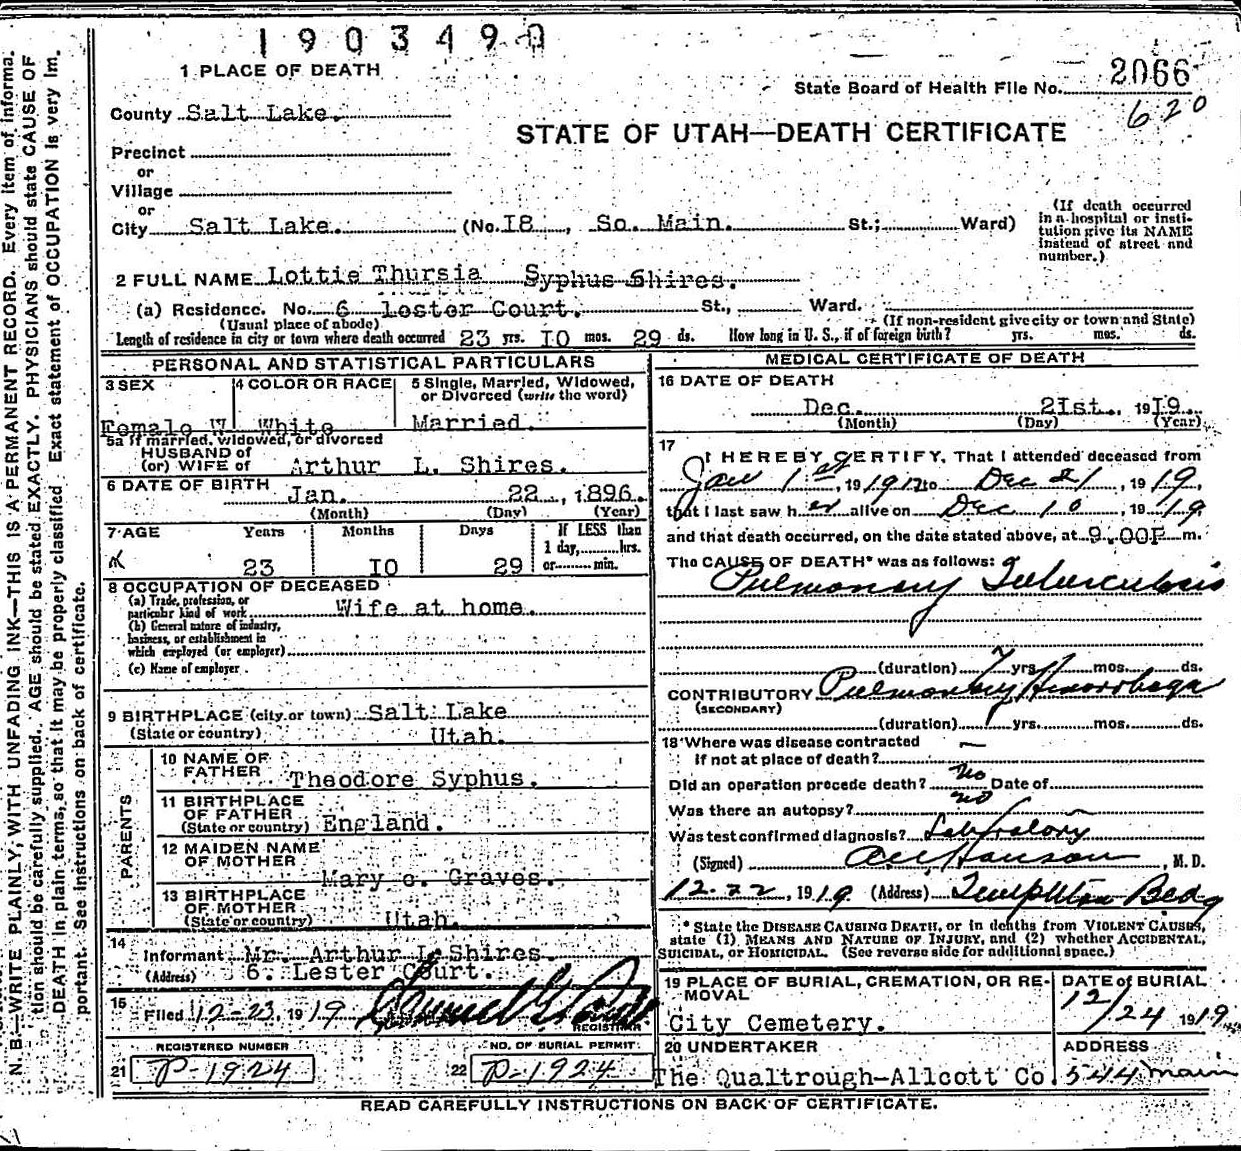 1903490
1 PLACE OF DEATH
State Board of Health File No. 2066
620
County Salt Lake.
STATE OF UTAH—DEATH CERTIFICATE
Precinct
or
Village
or
City Salt Lake. (No. I8, So. Main. St.; Ward)
(If death occurred in a hospital or institution give its NAME instead of street and number.)
2 FULL NAME Lottie Thursia Syphus Shires.
(a) Residence. No. 6 Lester Court. St., Ward.
(Usual place of abode) (If non-resident give city or town and State)
Length of residence in city or town where death occurred 23 yrs. IO mos. 29 ds. How long in U. S., if of foreign birth? yrs. mos. ds.
PERSONAL AND STATISTICAL PARTICULARS
3 SEX 4 COLOR OR RACE 5 Single, Married, Widowed, or Divorced (write the word)
Female W White Married.
5a If married, widowed, or divorced
HUSBAND of
(or) WIFE of Arthur L. Shires.
6 DATE OF BIRTH Jan. 22, 1896.
(Month) (Day) (Year)
7 AGE Years Months Days If LESS than
1 day, hrs.
or min.
23 IO 29
8 OCCUPATION OF DECEASED
(a) Trade, profession, or
particular kind of work Wife at home.
(b) General nature of industry,
business, or establishment in
which employed (or employer)
(c) Name of employer
9 BIRTHPLACE (city or town) Salt Lake
(State or country) Utah.
PARENTS
10 NAME OF
FATHER Theodore Syphus.
11 BIRTHPLACE
OF FATHER
(State or country) England.
12 MAIDEN NAME
OF MOTHER
Mary c. Graves.
13 BIRTHPLACE
OF MOTHER
(State or country) Utah.
14
Informant Mr. Arthur L. Shires.
(Address) 6. Lester Court.
15
Filed 12-23, 1919
REGISTRAR
REGISTERED NUMBER NO. OF BURIAL PERMIT
21 P-1924 22 P-1924
MEDICAL CERTIFICATE OF DEATH
16 DATE OF DEATH
Dec. 2Ist. 19I9.
(Month) (Day) (Year)
17
I HEREBY CERTIFY, That I attended deceased from
Jan 1st, 1919 to Dec 21, 1919,
that I last saw her alive on Dec 10, 1919
and that death occurred, on the date stated above, at 9.00P m.
The CAUSE OF DEATH* was as follows:
Pulmonary Tuberculosis
(duration) yrs. mos. ds.
CONTRIBUTORY Pulmonary Hemorrhage
(SECONDARY)
(duration) yrs. mos. ds.
18 Where was disease contracted
If not at place of death? —
Did an operation precede death? no Date of
Was there an autopsy? no
Was test confirmed diagnosis? Laboratory
(Signed) Hanson, M. D.
12-22, 1919 (Address) Templeton Bldg
* State the DISEASE CAUSING DEATH, or in deaths from VIOLENT CAUSES,
state (1) MEANS AND NATURE OF INJURY, and (2) whether ACCIDENTAL,
SUICIDAL, or HOMICIDAL. (See reverse side for additional space.)
19 PLACE OF BURIAL, CREMATION, OR REMOVAL DATE of BURIAL
City Cemetery. 12/24 1919
20 UNDERTAKER ADDRESS
The Qualtrough-Allcott Co. 544 main
READ CAREFULLY INSTRUCTIONS ON BACK OF CERTIFICATE.
N. B.—WRITE PLAINLY, WITH UNFADING INK—THIS IS A PERMANENT RECORD. Every item of informa-
tion should be carefully supplied. AGE should be stated EXACTLY. PHYSICIANS should state CAUSE OF
DEATH in plain terms, so that it may be properly classified. Exact statement of OCCUPATION is very im-
portant. See instructions on back of certificate.